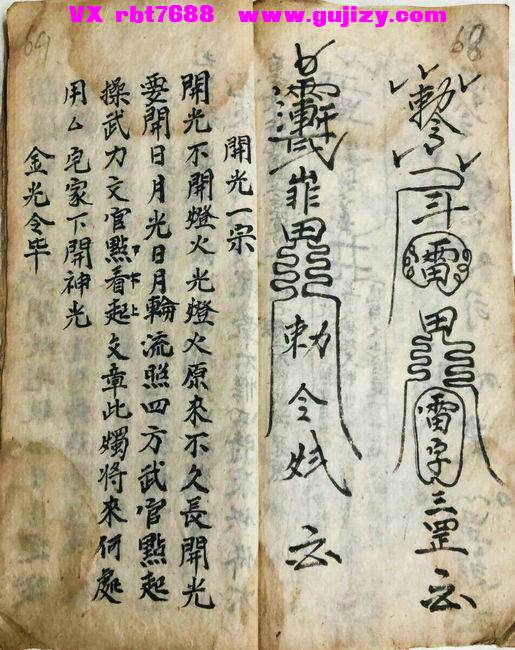 VX rbt7688 www.gujizy.com
68
敕令
斗
雷
甲
雷字三罡
甲
敕令
69
開光一宗
開光不開燈火光燈火原來不久長開光
要開日月光日月輪流照四方武官點起
操武力文官點看起文章此燭將來何處
用厶宅家下開神光
金光令毕